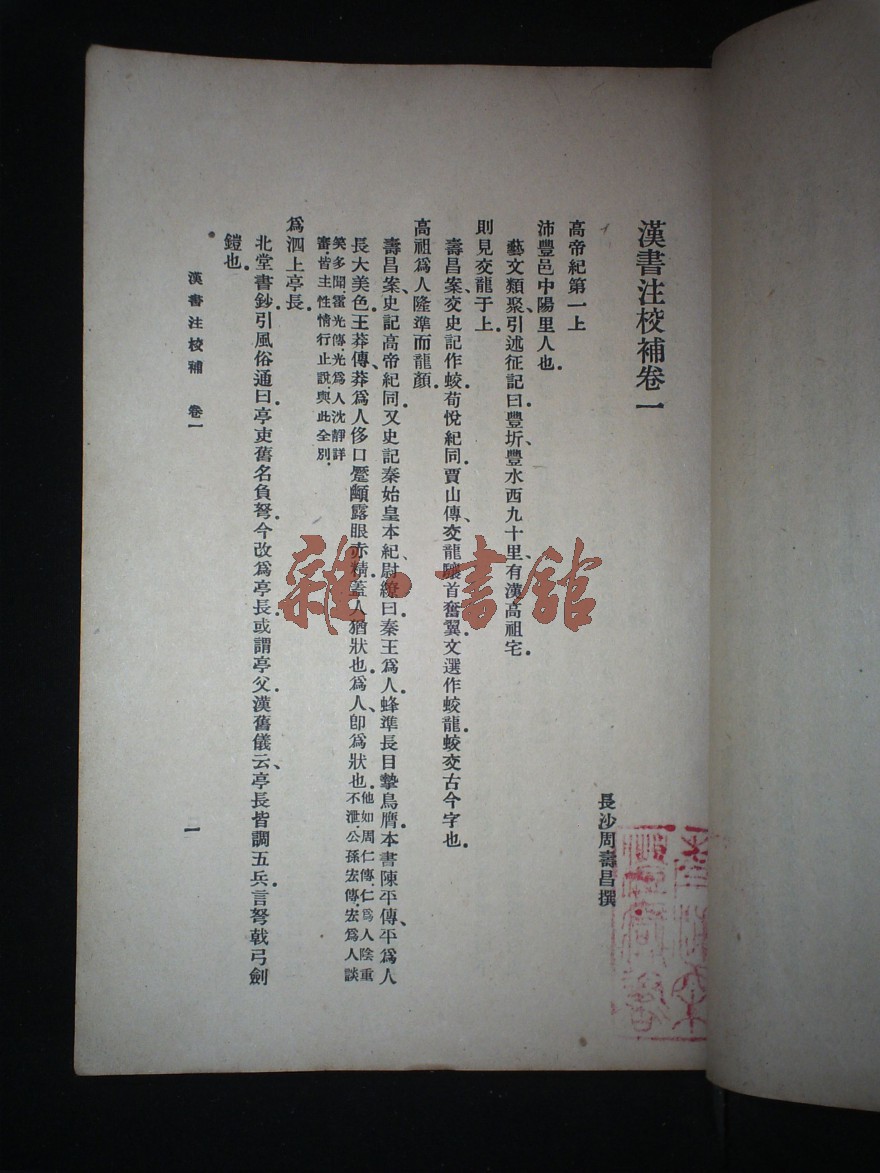 漢書注校補卷一
長沙周壽昌撰
高帝紀第一上
沛豐邑中陽里人也。
藝文類聚引述征記曰、豐圻豐水西九十里、有漢高祖宅。
則見交龍于上。
壽昌案、交、史記作蛟、荀悅紀同。賈山傳、交龍驤首奮翼。文選作蛟龍。蛟交古今字也。
高祖爲人隆準而龍顏。
壽昌案、史記高帝紀同。又史記秦始皇本紀、尉繚曰、秦王爲人、蜂準長目摯鳥膺。本書陳平傳、平爲人
長大美色。王莽傳、莽爲人侈口蹷顄露眼赤精。蓋人猶狀也。爲人、卽爲狀也。他如周仁傳、仁爲人陰重
不泄。公孫宏傳、宏爲人談
笑多聞。霍光傳、光爲人沈靜詳
審。皆主性情行止說、與此全別。
爲泗上亭長。
北堂書鈔引風俗通曰、亭吏舊名負弩。今改爲亭長。或謂亭父。漢舊儀云、亭長皆調五兵。言弩戟弓劍
鎧也。
漢書注校補 卷一
一
雜·書館